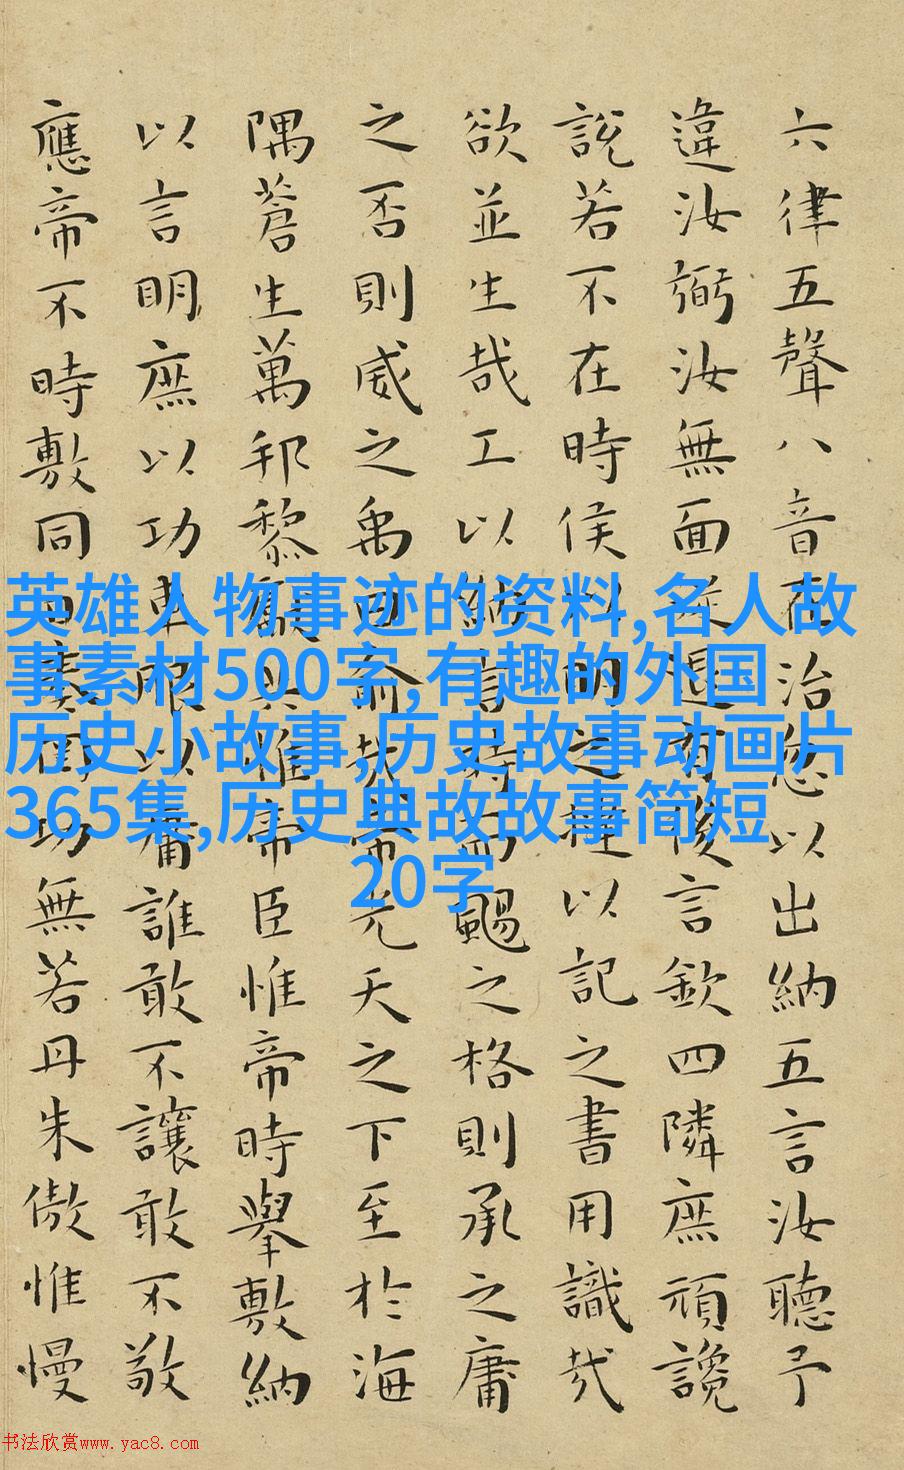 六律五聲八音在治忽以出納五言汝聽予
違汝弼汝無面從退有後言欽四隣庶頑讒
說若不在時侯以明之撻以記之書用識哉
欲並生哉工以納言時而颺之格則承之庸
之否則威之禹曰俞哉帝光天之下至於海
隅蒼生萬邦黎獻共惟帝臣惟帝時舉敷納
以言明庶以功車服以庸誰敢不讓敢不敬
應帝不時敷同日奏罔功無若丹朱傲惟慢
英雄人物事迹的资料,名人故
事素材500字,有趣的外国
历史小故事,历史故事动画片
365集,历史典故故事简短
20字
书法欣赏www.yac8.com